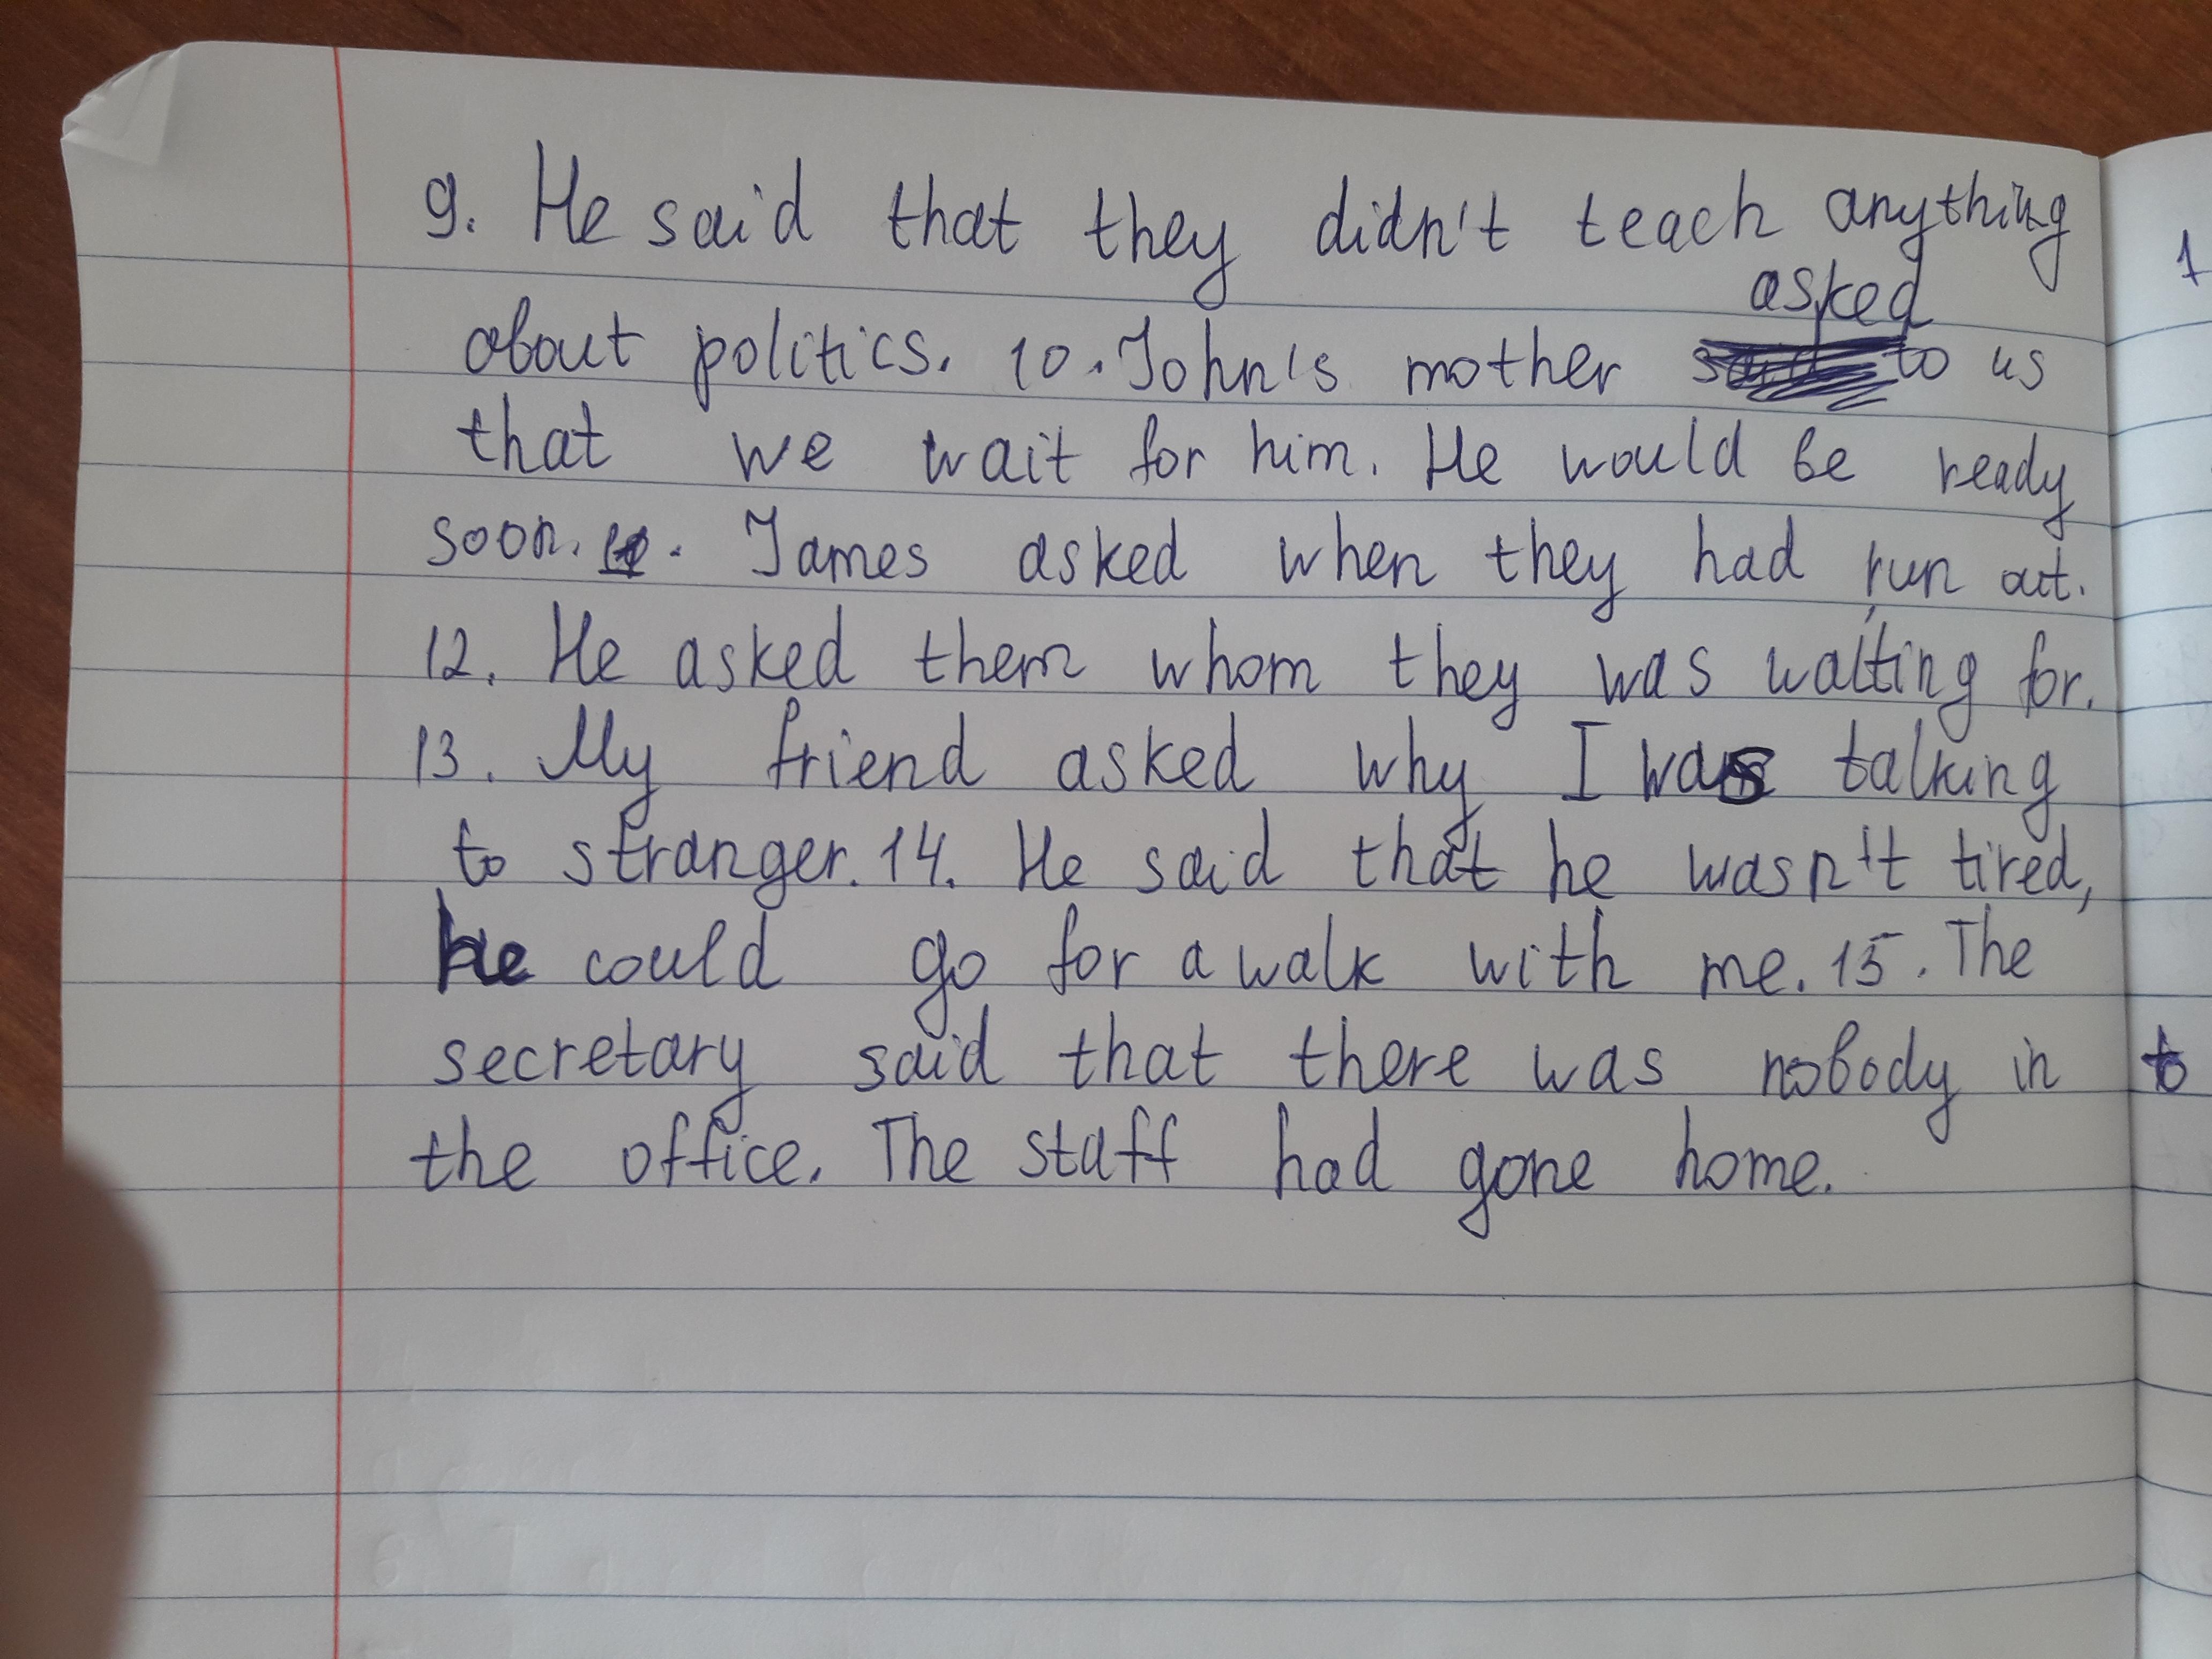 9. He said that they didn't teach anything
asked
about politics. 10. John's mother to us
that we wait for him. He would be ready
soon. 11. James asked when they had run out.
12. He asked them whom they was waiting for.
13. My friend asked why I was talking
to stranger. 14. He said that he wasn't tired,
he could go for a walk with me. 15. The
secretary said that there was nobody in
the office. The staff had gone home.